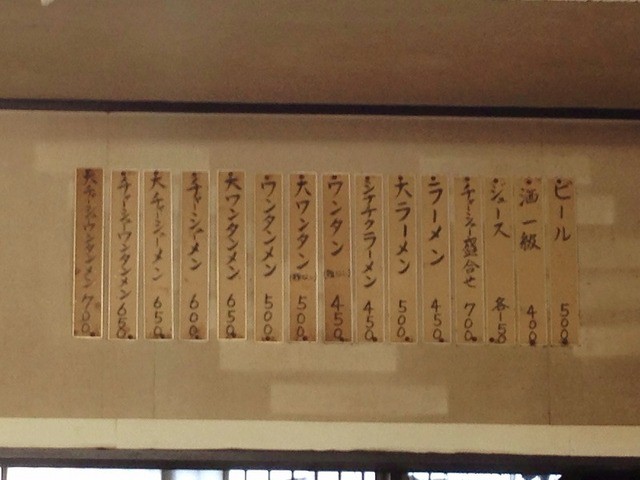 ビール 500
酒一級 400
ジュース 各150
チャーシュー盛合せ 700
ラーメン 450
大ラーメン 500
シナチクラーメン 450
ワンタン 450
大ワンタン 500
ワンタンメン 500
大ワンタンメン 650
チャーシューメン 600
大チャーシューメン 650
チャーシューワンタンメン 650
大チャーシューワンタンメン 700